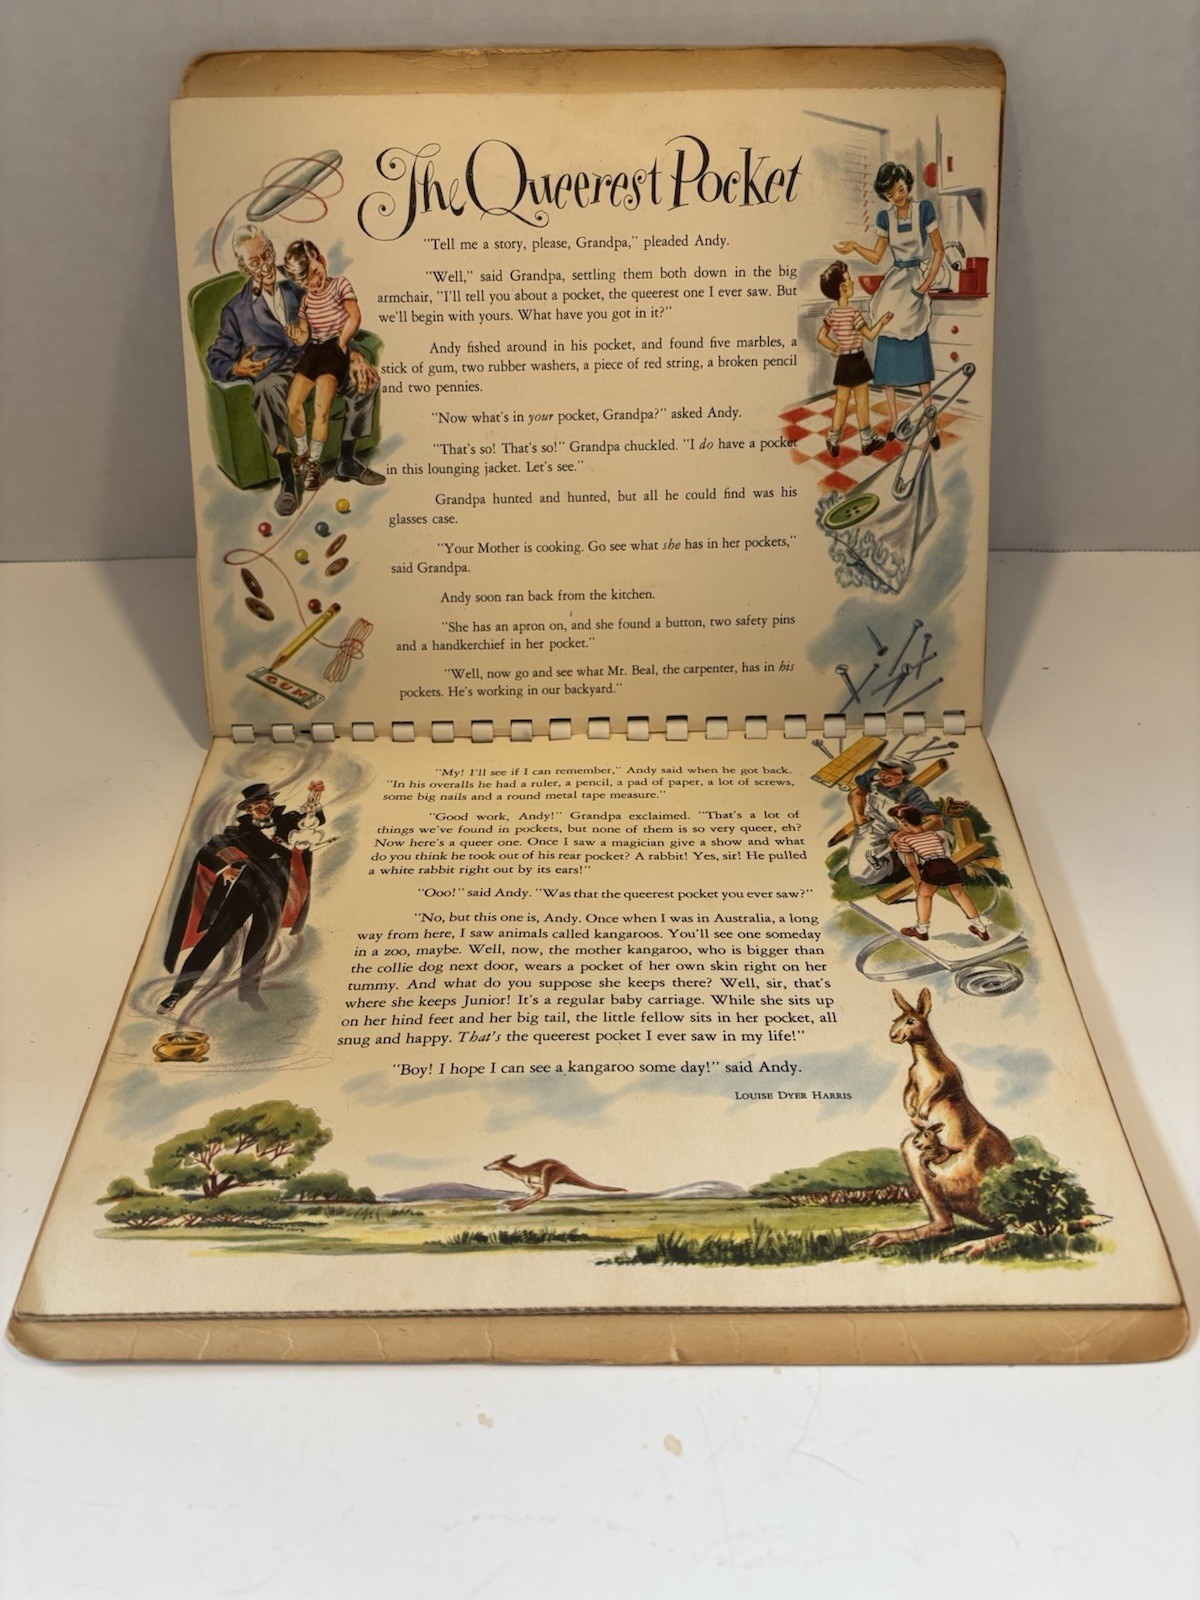 The Queerest Pocket
"Tell me a story, please, Grandpa," pleaded Andy.
"Well," said Grandpa, settling them both down in the big
armchair, "I'll tell you about a pocket, the queerest one I ever saw. But
we'll begin with yours. What have you got in it?"
Andy fished around in his pocket, and found five marbles, a
stick of gum, two rubber washers, a piece of red string, a broken pencil
and two pennies.
"Now what's in your pocket, Grandpa?" asked Andy.
"That's so! That's so!" Grandpa chuckled. "I do have a pocket
in this lounging jacket. Let's see."
Grandpa hunted and hunted, but all he could find was his
glasses case.
"Your Mother is cooking. Go see what she has in her pockets,"
said Grandpa.
Andy soon ran back from the kitchen.
"She has an apron on, and she found a button, two safety pins
and a handkerchief in her pocket."
"Well, now go and see what Mr. Beal, the carpenter, has in his
pockets. He's working in our backyard."
GUM
"My! I'll see if I can remember," Andy said when he got back.
"In his overalls he had a ruler, a pencil, a pad of paper, a lot of screws,
some big nails and a round metal tape measure."
"Good work, Andy!" Grandpa exclaimed. "That's a lot of
things we've found in pockets, but none of them is so very queer, eh?
Now here's a queer one. Once I saw a magician give a show and what
do you think he took out of his rear pocket? A rabbit! Yes, sir! He pulled
a white rabbit right out by its ears!"
"Ooo!" said Andy. "Was that the queerest pocket you ever saw?"
"No, but this one is, Andy. Once when I was in Australia, a long
way from here, I saw animals called kangaroos. You'll see one someday
in a zoo, maybe. Well, now, the mother kangaroo, who is bigger than
the collie dog next door, wears a pocket of her own skin right on her
tummy. And what do you suppose she keeps there? Well, sir, that's
where she keeps Junior! It's a regular baby carriage. While she sits up
on her hind feet and her big tail, the little fellow sits in her pocket, all
snug and happy. That's the queerest pocket I ever saw in my life!"
"Boy! I hope I can see a kangaroo some day!" said Andy.
LOUISE DYER HARRIS